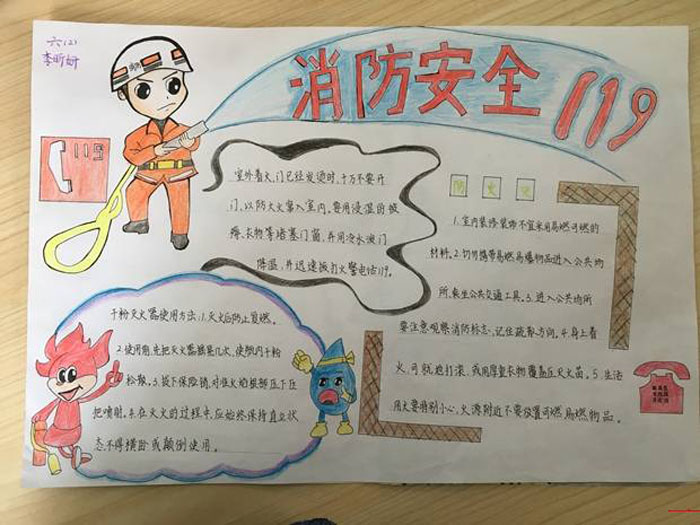 六(2)
李昕妍
消防安全119
119
消防
室外着火,门已经发烫时,千万不要开
门,以防大火窜入室内。要用浸湿的被
褥、衣物等堵塞门窗,并用冷水浇门
降温,并迅速拨打火警电话119。
防火
1.室内装修装饰不宜采用易燃可燃的
材料。2.切勿携带易燃易爆物品进入公共场
所、乘坐公共交通工具。3.进入公共场所
要注意观察消防标志,记住疏散方向。4.身上着
火,可就地打滚,或用厚重衣物覆盖压灭火苗。5.生活
用火要特别小心,火源附近不要放置可燃易燃物品。
干粉灭火器使用方法:1.灭火后防止复燃。
2.使用前,先把灭火器摇几次,使瓶内干粉
松散。3.拔下保险销,对准火焰根部压下压
把喷射。4.在灭火的过程中,应始终保持直立状
态,不得横卧或颠倒使用。